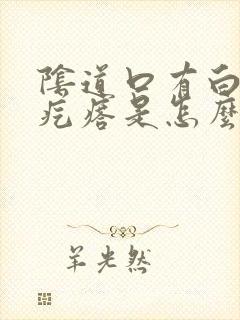 陰道口有白
疙瘩是怎麼
羊光然